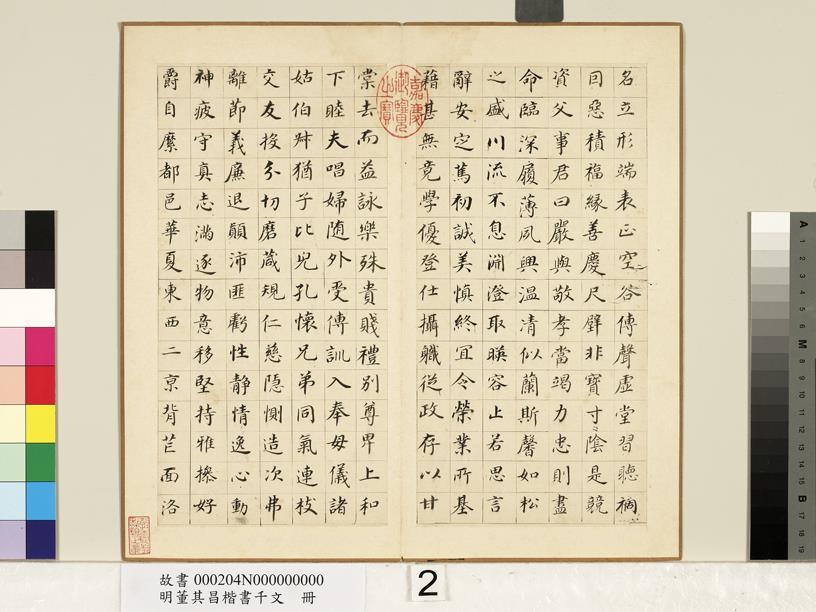 名立形端表正空谷傳聲虛堂習聽禍
因惡積福緣善慶尺璧非寶寸陰是競
資父事君曰嚴與敬孝當竭力忠則盡
命臨深履薄夙興溫凊似蘭斯馨如松
之盛川流不息淵澄取暎容止若思言
辭安定篤初誠美慎終宜令榮業所基
藉甚無竟學優登仕攝職從政存以甘
棠去而益詠樂殊貴賤禮別尊卑上和
下睦夫唱婦隨外受傅訓入奉母儀諸
姑伯叔猶子比兒孔懷兄弟同氣連枝
交友投分切磨葴規仁慈隱惻造次弗
離節義廉退顛沛匪虧性静情逸心動
神疲守真志滿逐物意移堅持雅操好
爵自縻都邑華夏東西二京背芒面洛
嘉慶御覽之寶
故書 000204N000000000
明董其昌楷書千文 冊
2
A 1 2 3 4 5 6 M 8 9 10 11 12 13 14 15 B 17 18 19